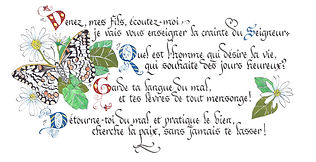 Venez, mes fils, écoutez-moi
je vais vous enseigner la crainte du Seigneur
Quel est l'homme qui désire la vie,
qui souhaite des jours heureux?
Garde ta langue du mal,
et tes lèvres de tout mensonge!
Détourne-toi du mal et pratique le bien,
cherche la paix, sans jamais te lasser!